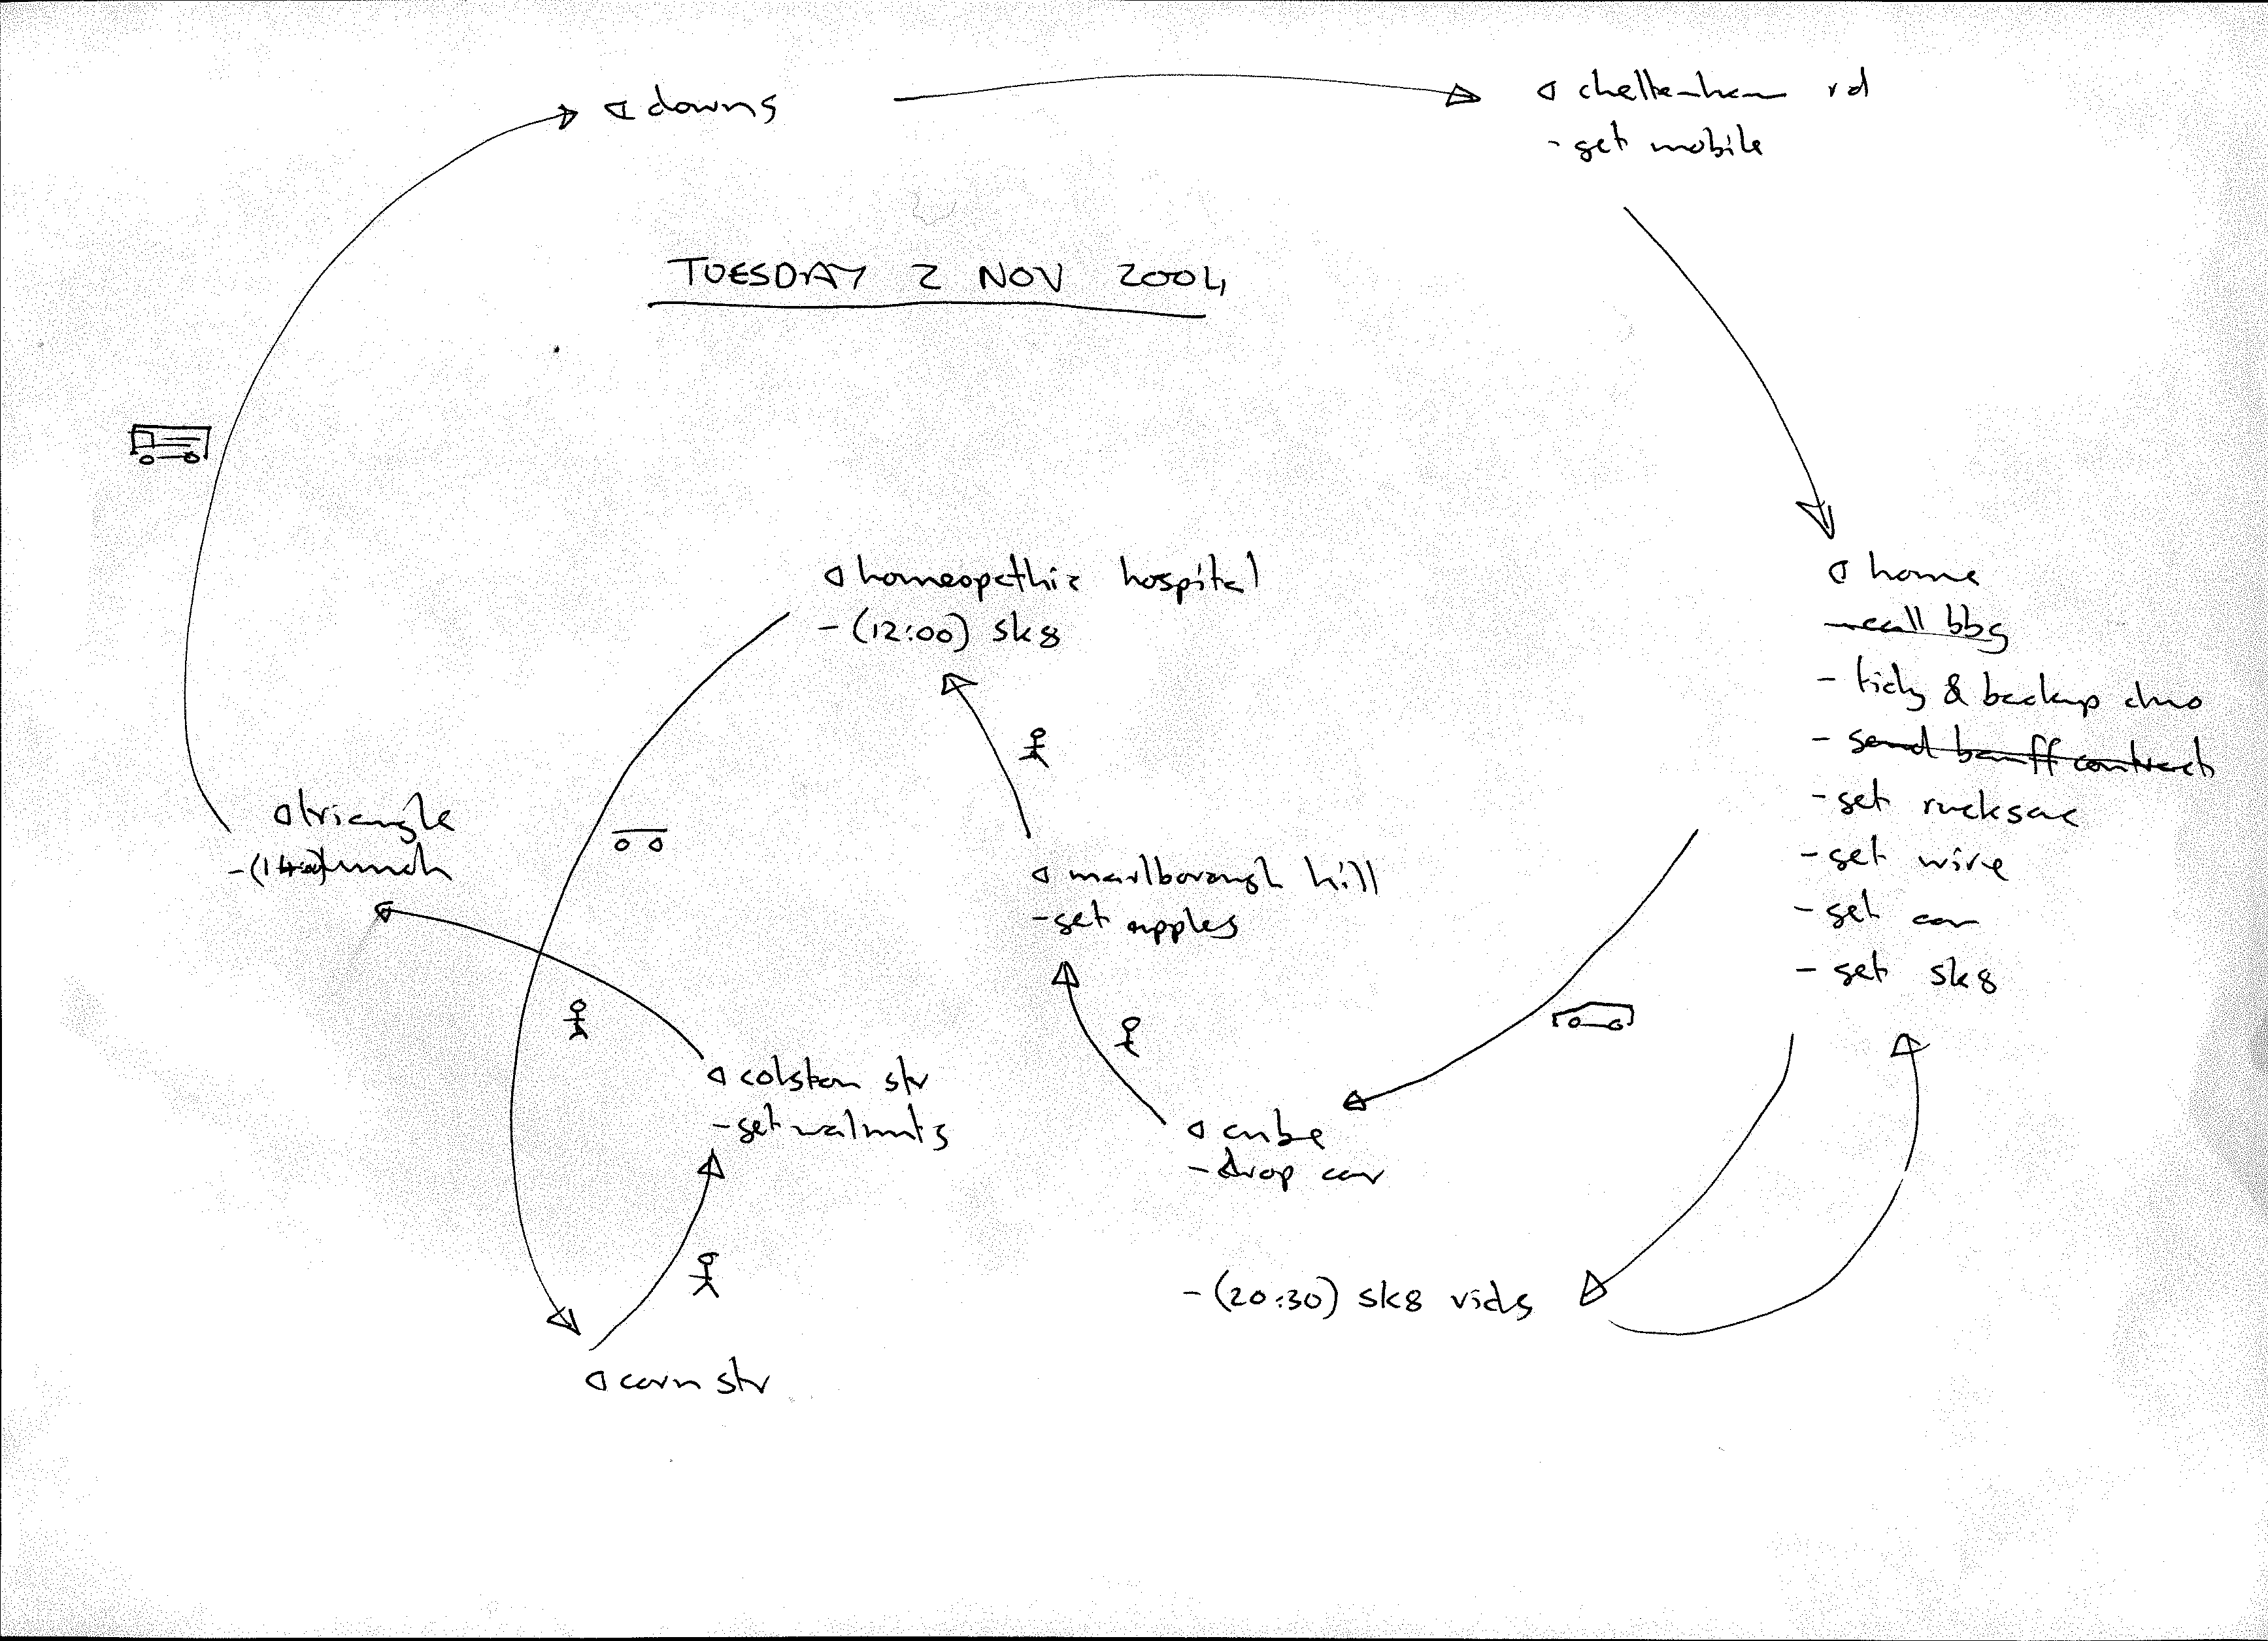 downs
cheltenham rd
- get mobile
TUESDAY 2 NOV 2004
homeopathic hospital
- (12:00) sk8
home
- call bbg
- tidy & backup duo
- send banff contract
- get rucksac
- get wire
- get car
- get sk8
triangle
- lunch
marlborough hill
- get apples
colston str
- get walnuts
cube
- drop car
- (20:30) sk8 vids
corn str